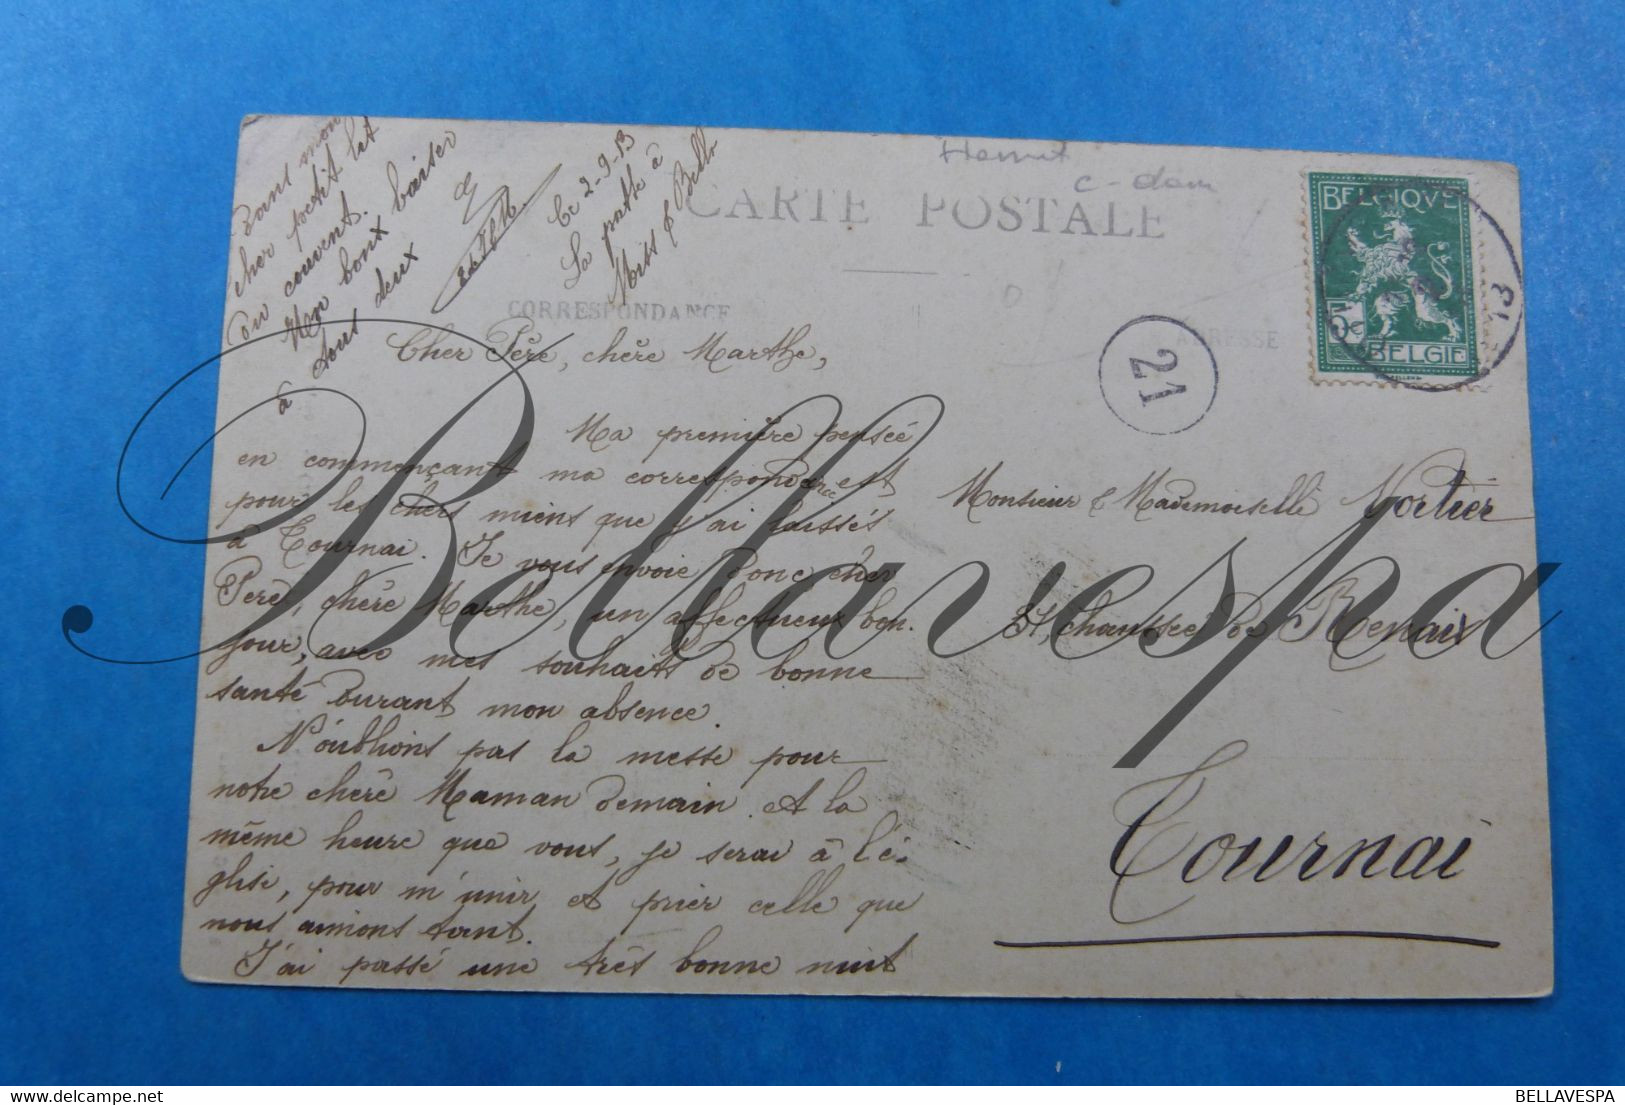 CARTE POSTALE
CORRESPONDANCE
ADRESSE
BELGIQUE
5c
BELGIE
21
13
Ce 2-9-13
La patte à
Miss & Bello
Cher Père, chère Marthe,
Ma première pensée
en commençant ma correspondance est
pour les chers miens que j'ai laissés
à Tournai. Je vous envoie donc cher
Père, chère Marthe, un affectueux bon-
jour, avec mes souhaits de bonne
santé durant mon absence.
N'oublions pas la messe pour
notre chère Maman demain. A la
même heure que vous, je serai à l'é-
glise, pour m'unir et prier celle que
nous aimons tant.
J'ai passé une très bonne nuit
Dans mon
cher petit lit
du couvent.
Un doux baiser
à tous deux
Monsieur & Mademoiselle Mortier
37, Chaussée de Renaix
Tournai
Bellavespa
BELLAVESPA